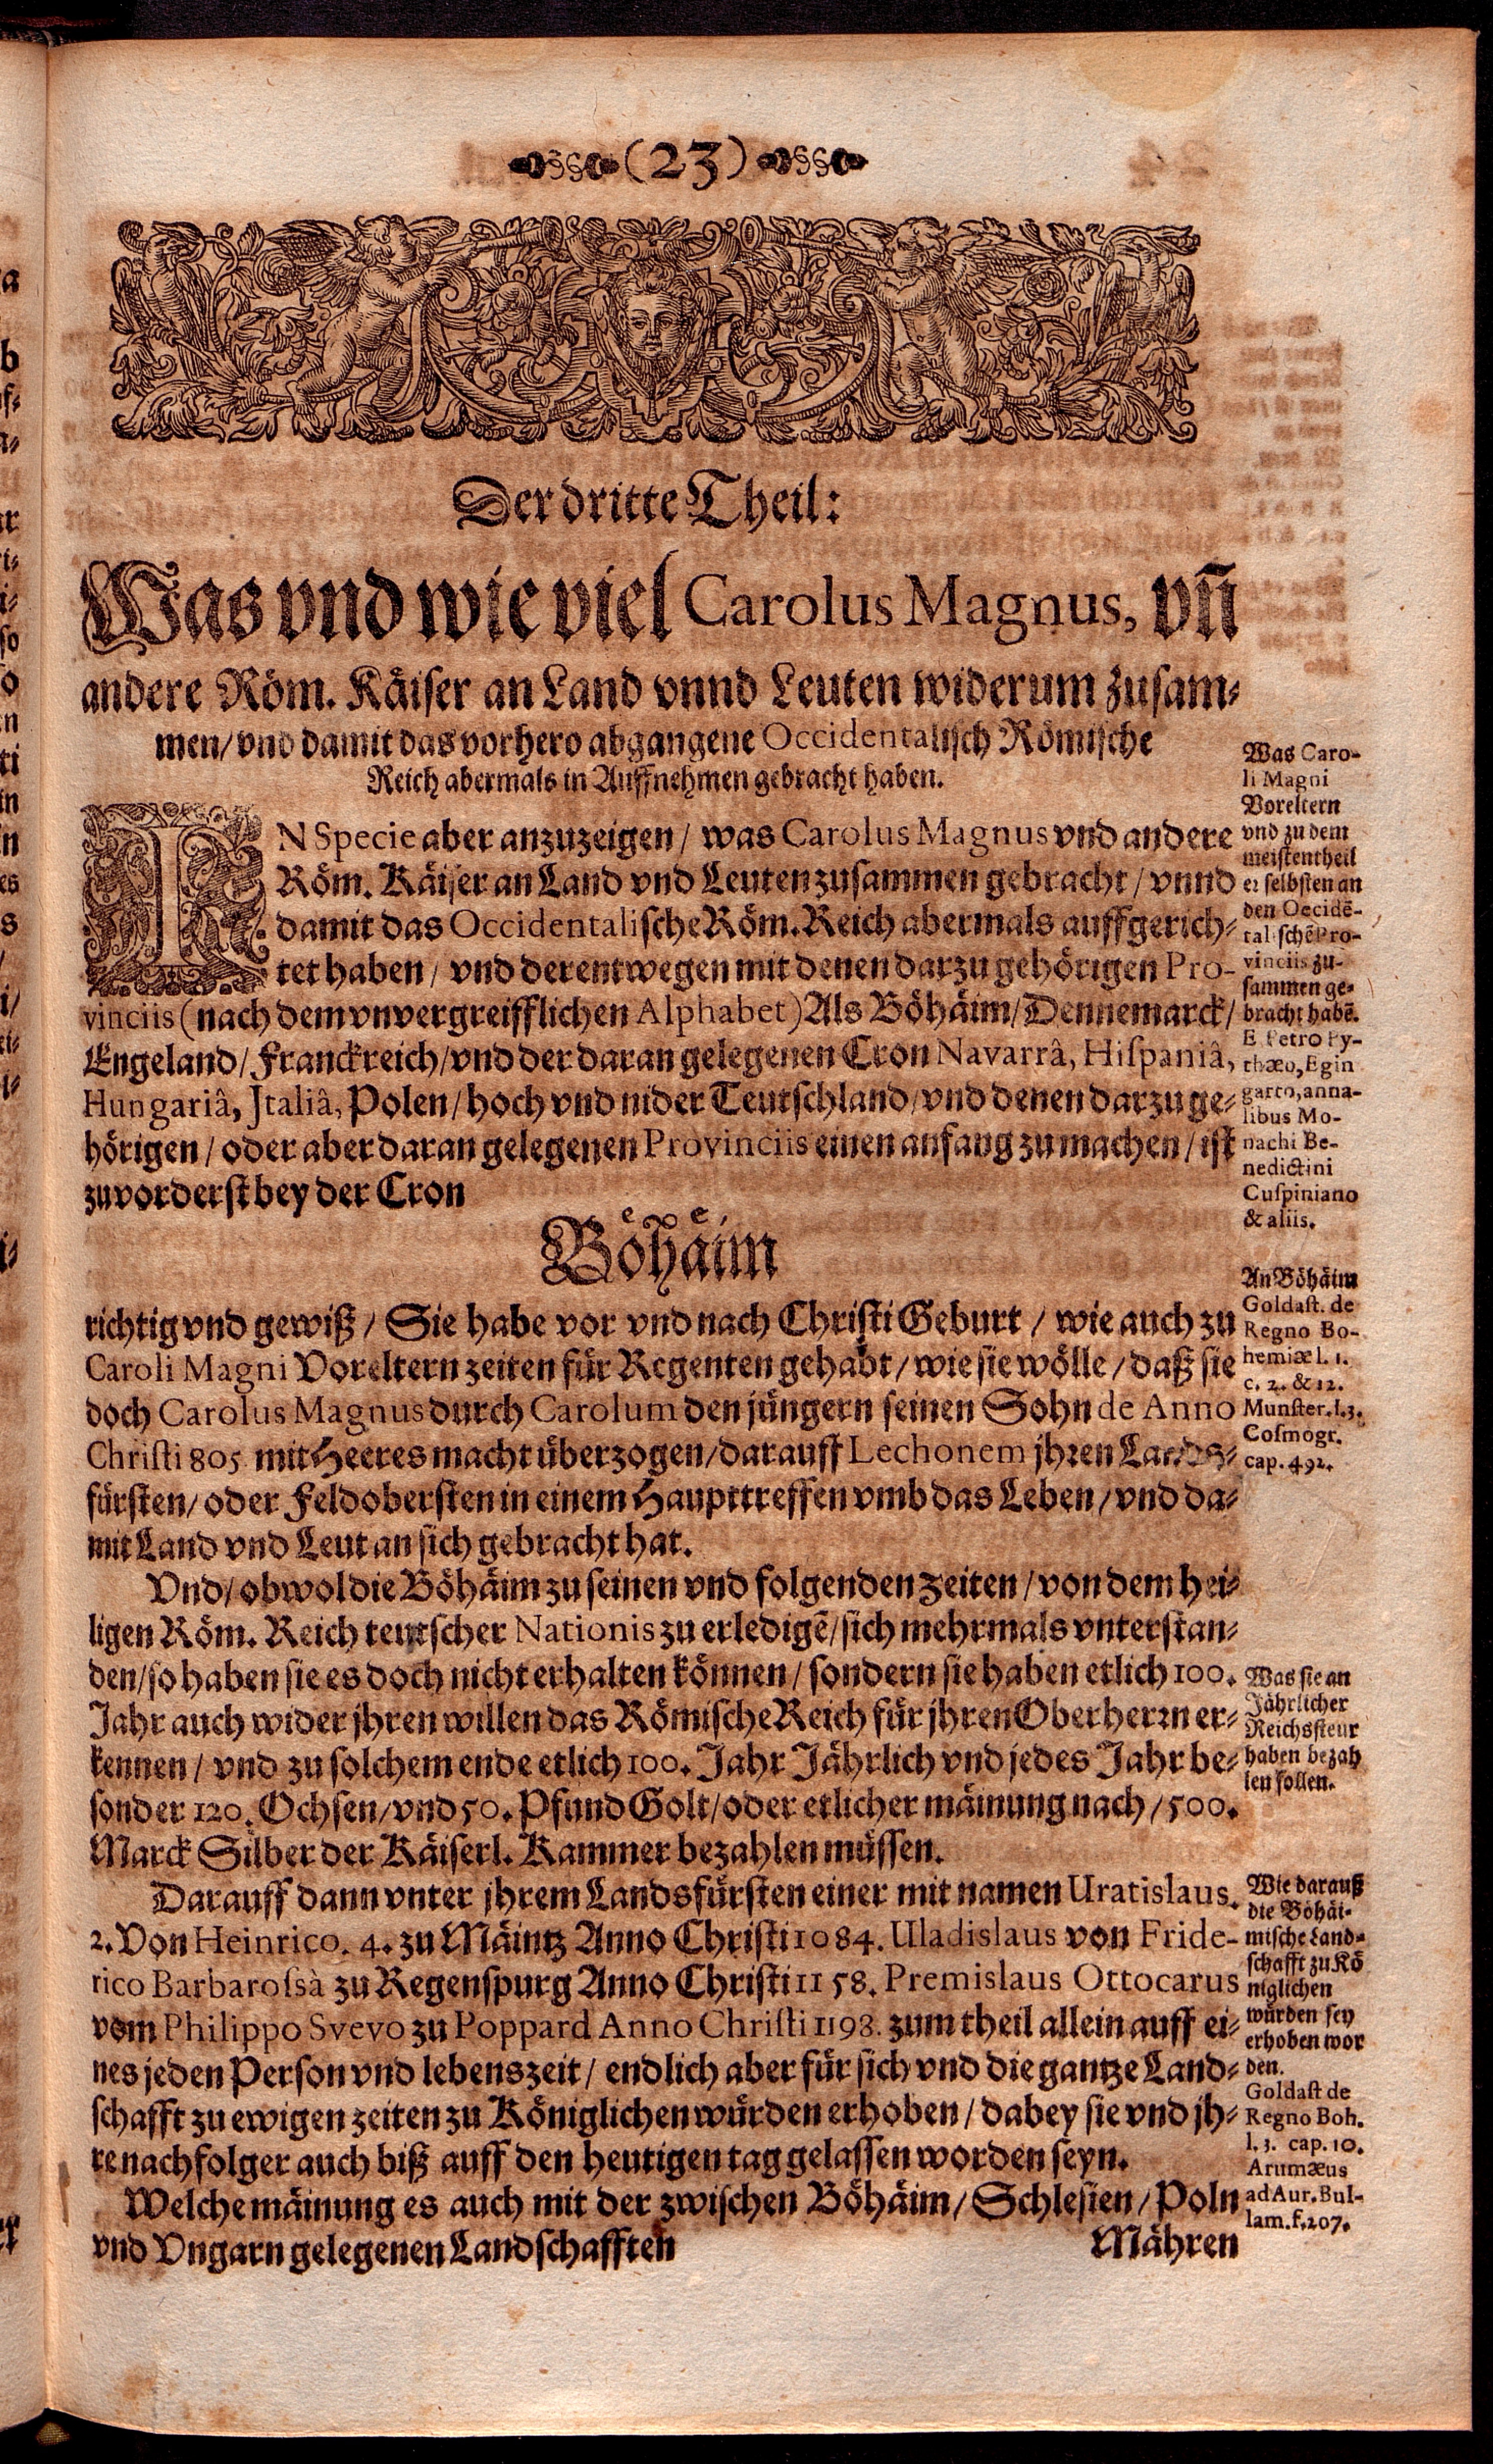 (23)
Der dritte Theil:
Was vnd wie viel Carolus Magnus, vñ
andere Röm. Käiser an Land vnnd Leuten widerum zusam⸗
men/ vnd damit das vorhero abgangene Occidentalisch Römische
Reich abermals in Auffnehmen gebracht haben.
IN Specie aber anzuzeigen/ was Carolus Magnus vnd andere
Röm. Käiser an Land vnd Leuten zusammen gebracht/ vnnd
damit das Occidentalische Röm. Reich abermals auffgerich⸗
tet haben/ vnd derentwegen mit denen darzu gehörigen Pro-
vinciis (nach dem vnvergreifflichen Alphabet) Als Böhäim/ Dennemarck/
Engeland/ Franckreich/ vnd der daran gelegenen Cron Navarrâ, Hispaniâ,
Hungariâ, Jtaliâ, Polen/ hoch vnd nider Teutschland/ vnd denen darzu ge⸗
hörigen/ oder aber daran gelegenen Provinciis einen anfang zu machen/ ist
zuvorderst bey der Cron
Böhäim
richtig vnd gewiß/ Sie habe vor vnd nach Christi Geburt/ wie auch zu
Caroli Magni Voreltern zeiten für Regenten gehabt/ wie sie wölle/ daß sie
doch Carolus Magnus durch Carolum den jüngern seinen Sohn de Anno
Christi 805 mit Heeres macht überzogen/ darauff Lechonem jhren Lands⸗
fürsten/ oder Feldobersten in einem Haupttreffen vmb das Leben/ vnd da⸗
mit Land vnd Leut an sich gebracht hat.
Vnd/ obwol die Böhäim zu seinen vnd folgenden zeiten/ von dem hei⸗
ligen Röm. Reich teutscher Nationis zu erledigẽ/ sich mehrmals vnterstan⸗
den/ so haben sie es doch nicht erhalten können/ sondern sie haben etlich 100.
Jahr auch wider jhren willen das Römische Reich für jhren Oberherrn er⸗
kennen/ vnd zu solchem ende etlich 100. Jahr Jährlich vnd jedes Jahr be⸗
sonder 120. Ochsen/ vnd 50. Pfund Golt/ oder etlicher mäinung nach/ 500.
Marck Silber der Käiserl. Kammer bezahlen müssen.
Darauff dann vnter jhrem Landsfürsten einer mit namen Uratislaus.
2. Von Heinrico. 4. zu Mäintz Anno Christi 1084. Uladislaus von Fride-
rico Barbarossà zu Regenspurg Anno Christi 1158. Premislaus Ottocarus
vom Philippo Svevo zu Poppard Anno Christi 1198. zum theil allein auff ei⸗
nes jeden Person vnd lebenszeit/ endlich aber für sich vnd die gantze Land⸗
schafft zu ewigen zeiten zu Königlichen würden erhoben/ dabey sie vnd jh⸗
re nachfolger auch biß auff den heutigen tag gelassen worden seyn.
Welche mäinung es auch mit der zwischen Böhäim/ Schlesien/ Poln
vnd Vngarn gelegenen Landschafften
Mähren
Was Caro-
li Magni
Voreltern
vnd zu dem
meistentheil
er selbsten an
den Occidẽ-
talischẽ Pro-
vinciis zu-
sammen ge⸗
bracht habẽ.
E Petro Py-
thæo, Egin
garto, anna-
libus Mo-
nachi Be-
nedictini
Cuspiniano
& aliis.
An Böhäim
Goldast. de
Regno Bo-
hemiæ l. 1.
c. 2. & 12.
Munster. l. 3.
Cosmogr.
cap. 492.
Was sie an
Jährlicher
Reichssteur
haben bezah
len sollen.
Wie darauß
die Böhäi-
mische Land⸗
schafft zu Kö
niglichen
würden sey
erhoben wor
den.
Goldast de
Regno Boh.
l. 3. cap. 10.
Arumæus
ad Aur. Bul-
lam. f. 207.